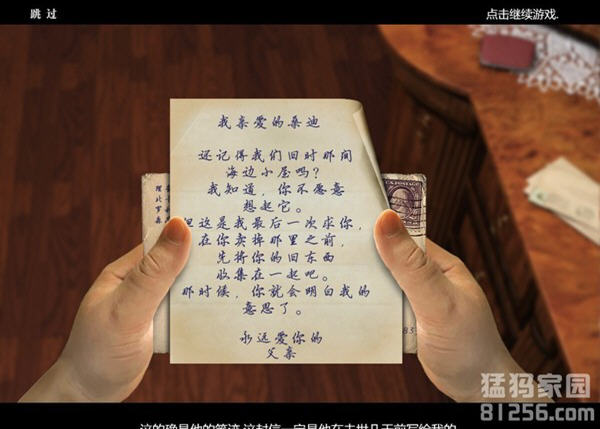 跳过
点击继续游戏.
我亲爱的桑迪
还记得我们旧时那间
海边小屋吗?
我知道, 你不愿意
想起它。
但这是我最后一次求你,
在你卖掉那里之前,
先将你的旧东西
收集在一起吧。
那时候, 你就会明白我的
意思了。
永远爱你的
父亲
猛犸家园
81256.com
这的确是他的笔迹,这封信一定是他在去世几天前写给我的